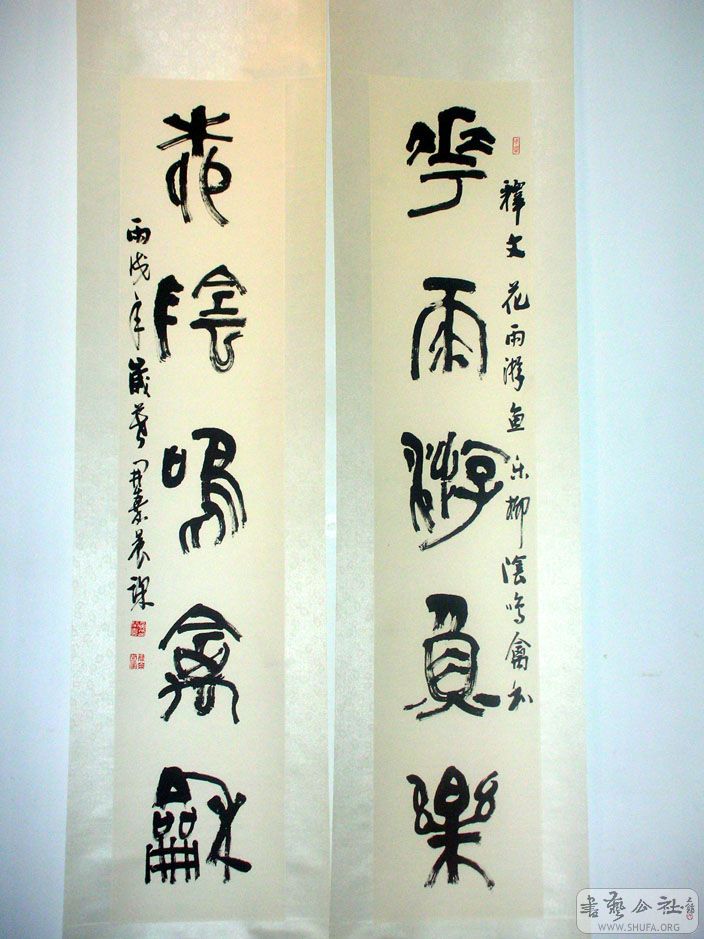 花雨游魚樂
釋文 花雨游魚樂柳陰鳴禽和
柳陰鳴禽龢
丙戌年歲暮 晨課
書藝公社
WWW.SHUFA.ORG